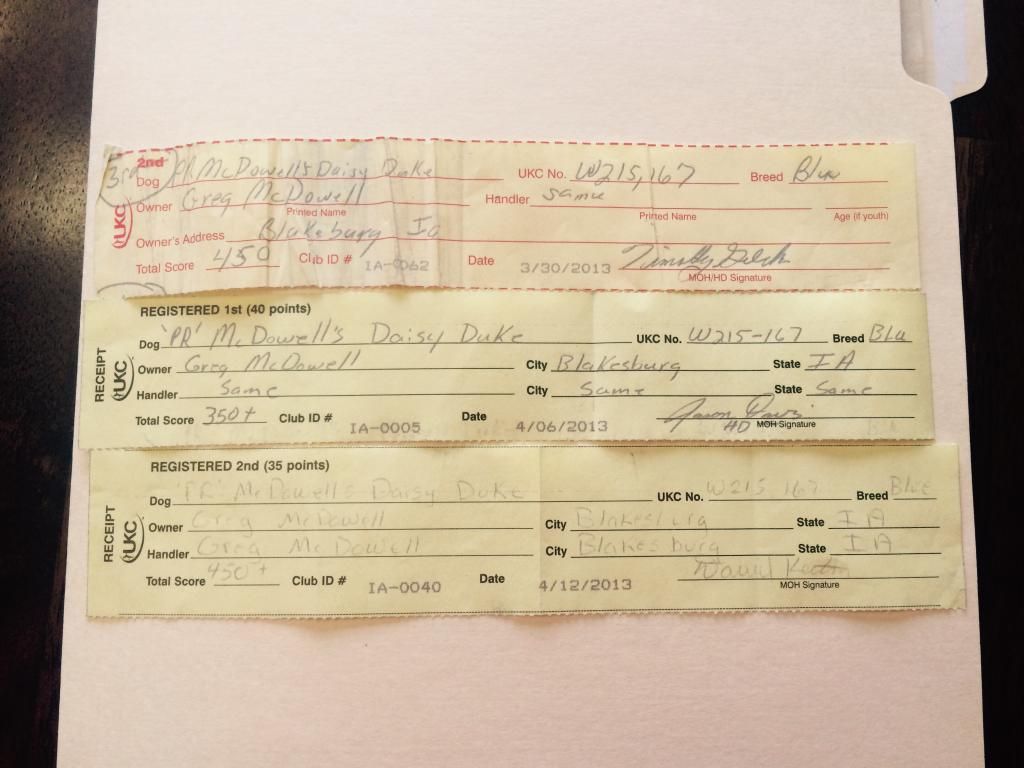 3rd 2nd
Dog PR McDowell's Daisy Duke UKC No. W215,167 Breed Blue
Owner Greg McDowell Handler same
Printed Name Printed Name Age (if youth)
UKC
Owner's Address Blakesburg Ia
Total Score 450 Club ID # IA-0062 Date 3/30/2013 Timothy
MOH/HD Signature
REGISTERED 1st (40 points)
Dog 'PR' McDowell's Daisy Duke UKC No. W215-167 Breed Blu
RECEIPT UKC
Owner Greg McDowell City Blakesburg State IA
Handler Same City Same State Same
Total Score 350+ Club ID # IA-0005 Date 4/06/2013 Jason Davis
HD MOH Signature
REGISTERED 2nd (35 points)
Dog 'PR' McDowell's Daisy Duke UKC No. W215,167 Breed Blue
RECEIPT UKC
Owner Greg McDowell City Blakesburg State IA
Handler Greg McDowell City Blakesburg State IA
Total Score 450+ Club ID # IA-0040 Date 4/12/2013
MOH Signature